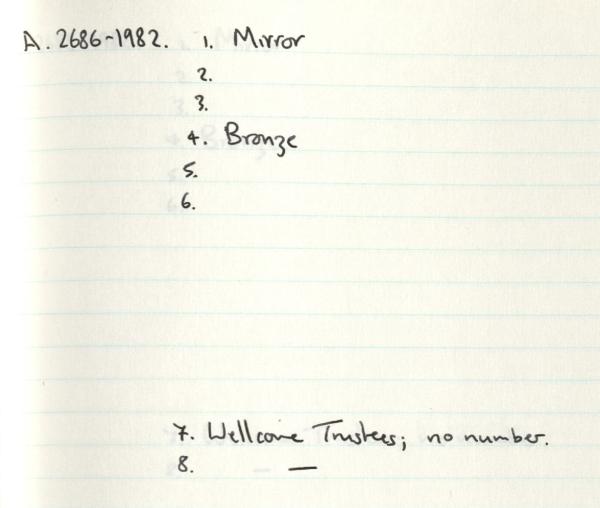 A. 2686-1982. 1. Mirror
2.
3.
4. Bronze
5.
6.
7. Wellcome Trustees; no number.
8. —